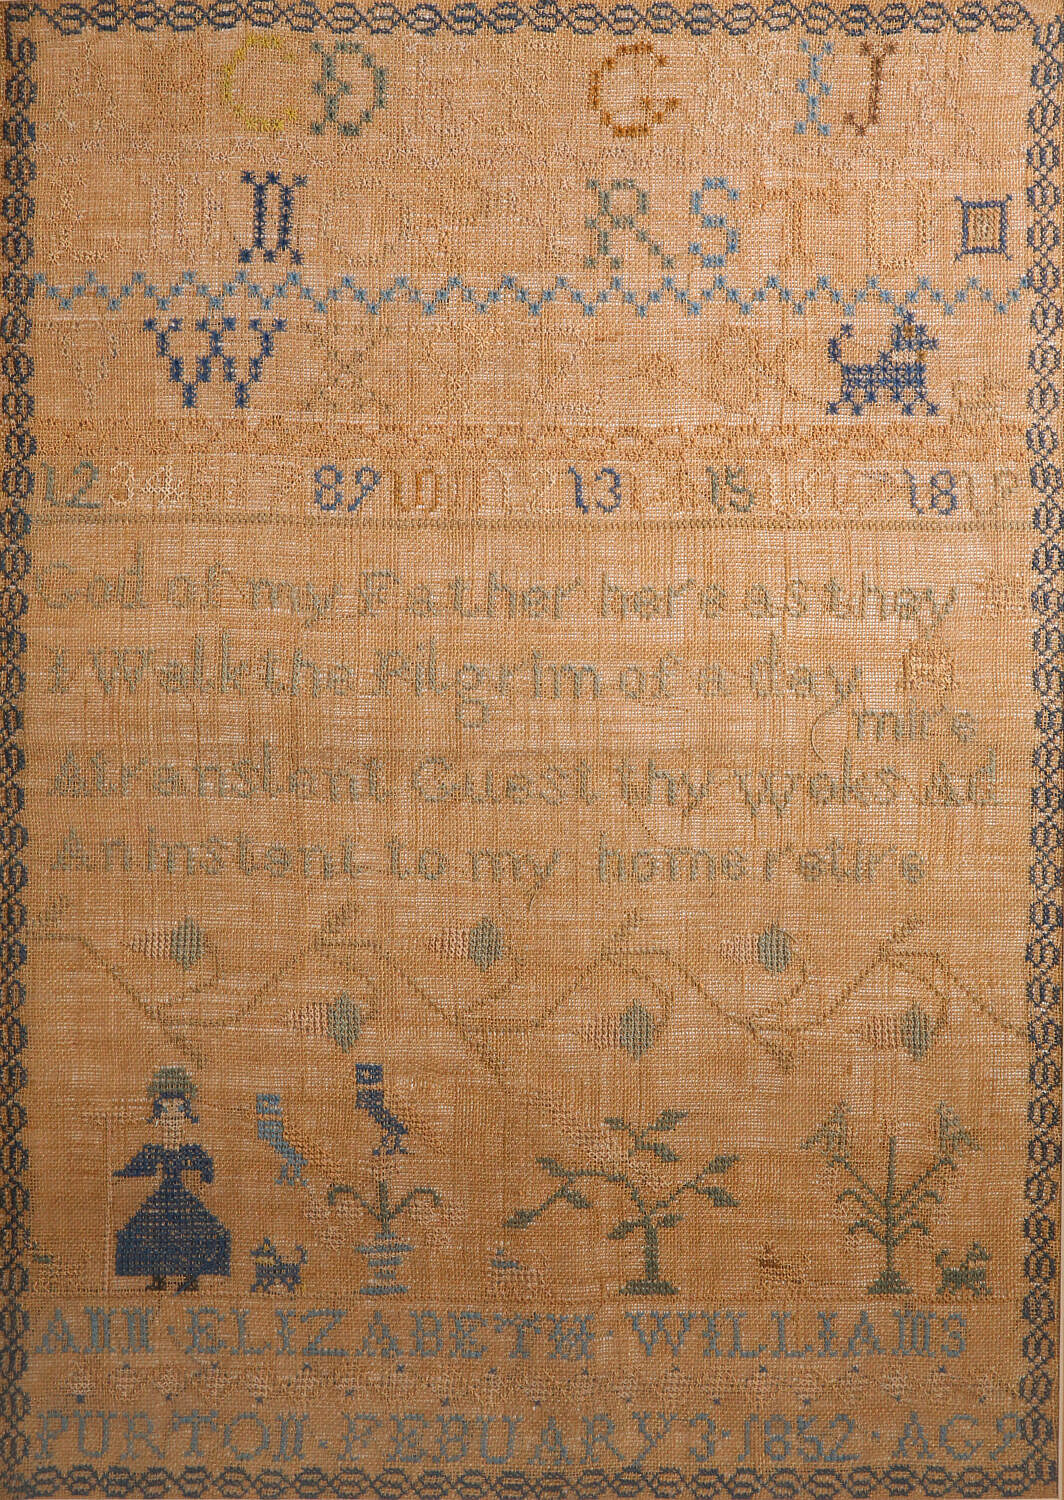 C D G I J
N R S T U
W X
1 2 3 4 8 9 10 11 12 13 15 18
God of my Father here as they
I Walk the Pilgrim of a day
mire
Atranslent Guest thy Woks Ad
An instent to my home retire
ANN · ELIZABETH WILLIAMS
PURTON · FEBUARY 3 · 1852 · AG 9